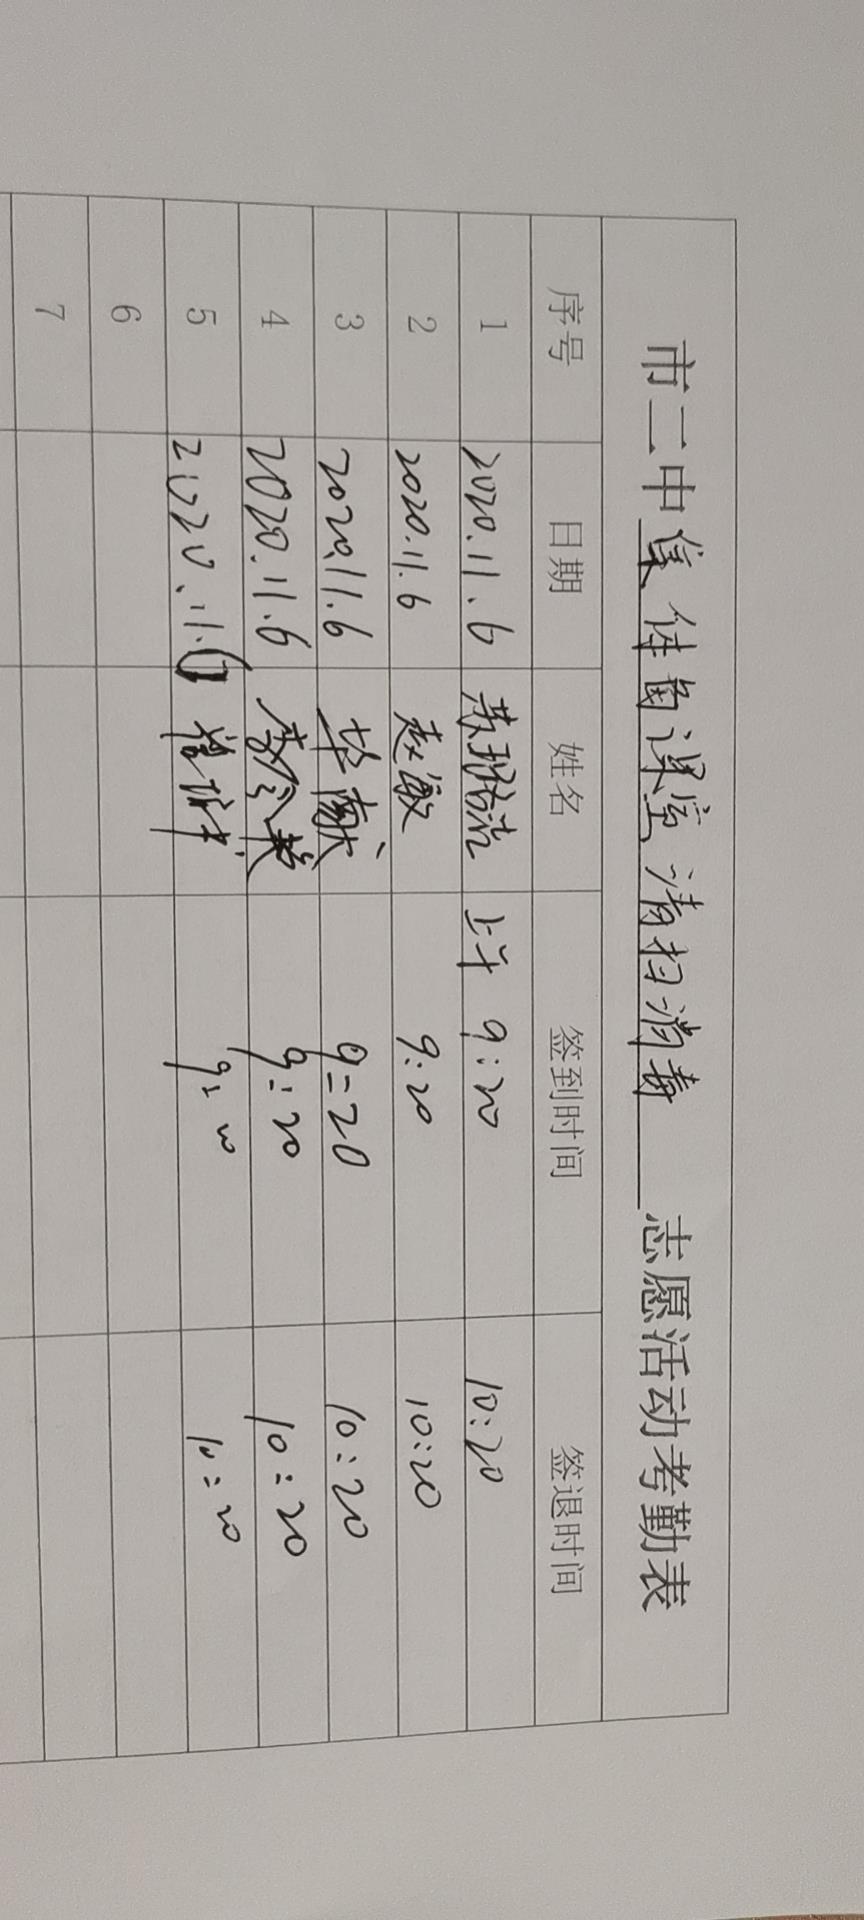 市二中集体自课室清扫消毒 志愿活动考勤表
序号 日期 姓名 签到时间 签退时间
1 2020.11.6 苏 浩 上午 9:20 10:20
2 2020.11.6 赵敏 9:20 10:20
3 2020.11.6 毕献 9:20 10:20
4 2020.11.6 李 9:20 10:20
5 2020.11.6 9:20 10:20
6
7